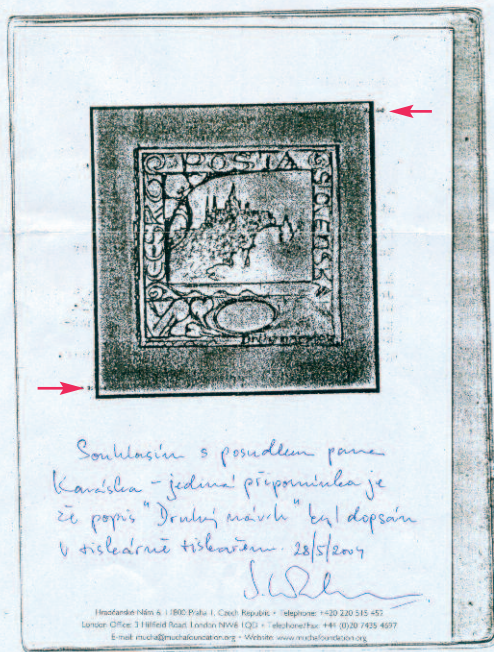 POSTA
ČESKO
SLOVENSKÁ
Souhlasím s posudkem pana
Karáska – jediná připomínka je
že popis "Druhý návrh" byl dopsán
v tiskárně tiskařem. 28/5/2004
Hradčanské Nám 6, 11800 Praha 1, Czech Republic • Telephone: +420 220 515 457
London Office: 3 Hillfield Road London NW6 1QD • Telephone/Fax: +44 (0)20 7435 4697
E-mail: mucha@muchafoundation.org • Website: www.muchafoundation.org